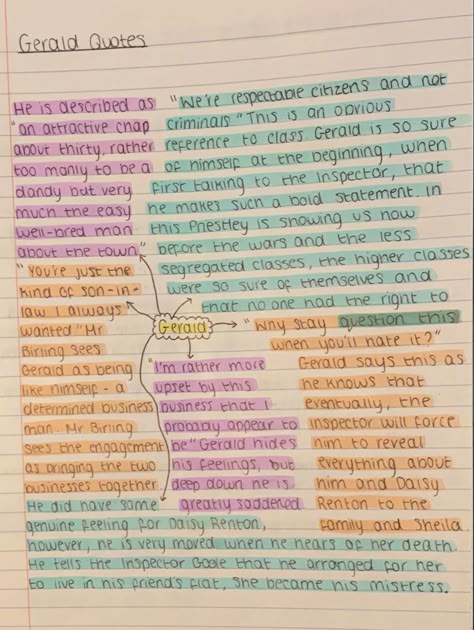 Gerald Quotes
He is described as
"an attractive chap
about thirty, rather
too manly to be a
dandy but very
much the easy
well-bred man
about the town"
"We're respectable citizens and not
criminals" This is an obvious
reference to class Gerald is so sure
of himself at the beginning, when
first talking to the Inspector, that
he makes such a bold statement. In
this Priestley is showing us now
before the wars and the less
segregated classes, the higher classes
were so sure of themselves and
that no one had the right to
question this
"You're just the
kind of son-in-
law I always
wanted" Mr
Birling sees
Gerald as being
like himself - a
determined business
man. Mr Birling
sees the engagement
as bringing the two
businesses together
Gerald
"Why stay
when you'll hate it?"
Gerald says this as
he knows that
eventually, the
Inspector will force
him to reveal
everything about
him and Daisy
Renton to the
family and Sheila.
"I'm rather more
upset by this
business that I
probably appear to
be" Gerald hides
his feelings, but
deep down he is
greatly saddened
He did have some
genuine feeling for Daisy Renton,
however, he is very moved when he hears of her death.
He tells the Inspector Goole that he arranged for her
to live in his friend's flat, She became his mistress.